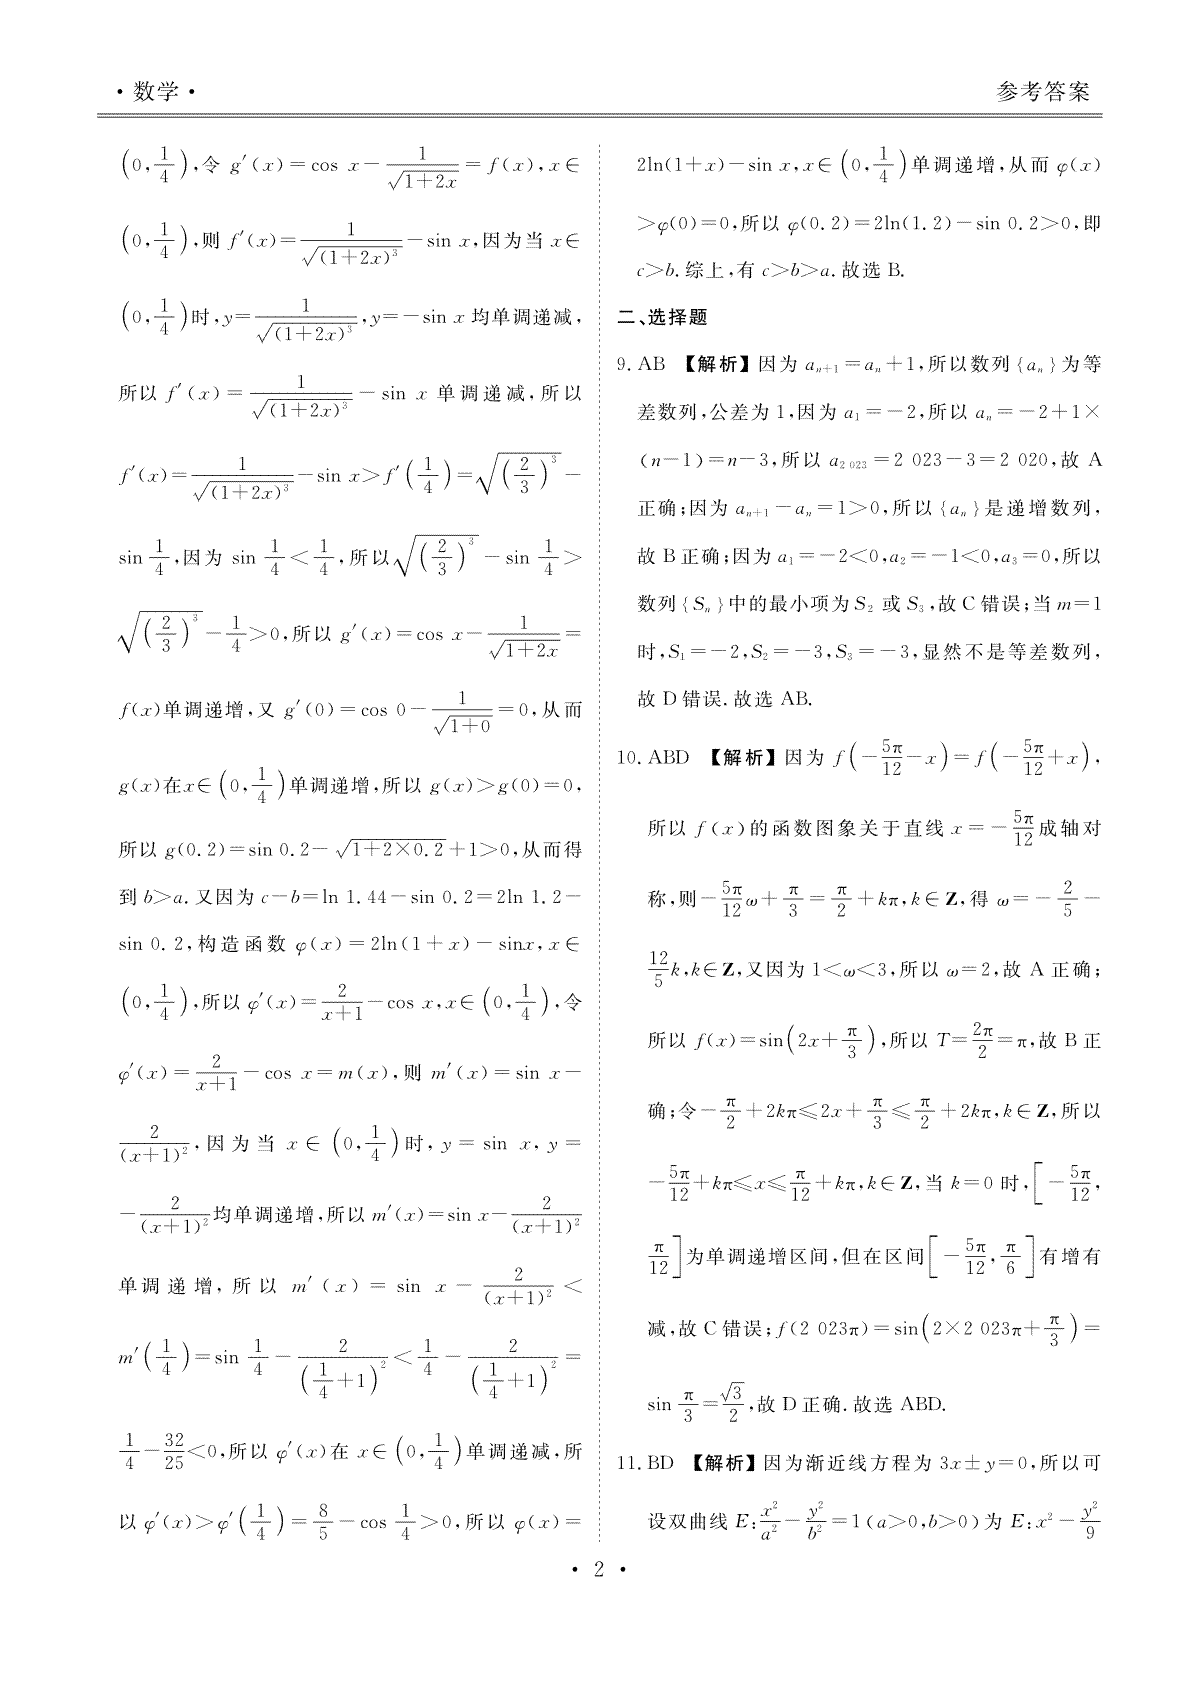 · 数学 ·
参考答案
(0,1/4),令 g′(x)=cos x−1/√(1+2x)=f(x),x∈
(0,1/4),则 f′(x)=1/√(1+2x)³−sin x,因为当 x∈
(0,1/4)时,y=1/√(1+2x)³,y=−sin x 均单调递减,
所以 f′(x)=1/√(1+2x)³−sin x 单调递减,所以
f′(x)=1/√(1+2x)³−sin x>f′(1/4)=√(2/3)³−
sin 1/4,因为 sin 1/4<1/4,所以√(2/3)³−sin 1/4>
√(2/3)³−1/4>0,所以 g′(x)=cos x−1/√(1+2x)=
f(x)单调递增,又 g′(0)=cos 0−1/√(1+0)=0,从而
g(x)在x∈(0,1/4)单调递增,所以 g(x)>g(0)=0,
所以 g(0.2)=sin 0.2−√(1+2×0.2)+1>0,从而得
到 b>a.又因为 c−b=ln 1.44−sin 0.2=2ln 1.2−
sin 0.2,构造函数 φ(x)=2ln(1+x)−sinx,x∈
(0,1/4),所以 φ′(x)=2/(x+1)−cos x,x∈(0,1/4),令
φ′(x)=2/(x+1)−cos x=m(x),则 m′(x)=sin x−
2/(x+1)²,因为当 x∈(0,1/4)时,y=sin x,y=
−2/(x+1)²均单调递增,所以 m′(x)=sin x−2/(x+1)²
单调递增,所以 m′(x)=sin x−2/(x+1)²<
m′(1/4)=sin 1/4−2/(1/4+1)²<1/4−2/(1/4+1)²=
1/4−32/25<0,所以 φ′(x)在 x∈(0,1/4)单调递减,所
以 φ′(x)>φ′(1/4)=8/5−cos 1/4>0,所以 φ(x)=
2ln(1+x)−sin x,x∈(0,1/4)单调递增,从而 φ(x)
>φ(0)=0,所以 φ(0.2)=2ln(1.2)−sin 0.2>0,即
c>b.综上,有 c>b>a.故选 B.
二、选择题
9. AB 【解析】因为 aₙ₊₁=aₙ+1,所以数列{aₙ}为等
差数列,公差为 1,因为 a₁=−2,所以 aₙ=−2+1×
(n−1)=n−3,所以 a₂ ₀₂₃=2 023−3=2 020,故 A
正确;因为 aₙ₊₁−aₙ=1>0,所以{aₙ}是递增数列,
故 B 正确;因为 a₁=−2<0,a₂=−1<0,a₃=0,所以
数列{Sₙ}中的最小项为 S₂ 或 S₃,故 C 错误;当 m=1
时,S₁=−2,S₂=−3,S₃=−3,显然不是等差数列,
故 D 错误.故选 AB.
10. ABD 【解析】因为 f(−5π/12−x)=f(−5π/12+x),
所以 f(x)的函数图象关于直线 x=−5π/12成轴对
称,则−5π/12ω+π/3=π/2+kπ,k∈Z,得 ω=−2/5−
12/5k,k∈Z,又因为 1<ω<3,所以 ω=2,故 A 正确;
所以 f(x)=sin(2x+π/3),所以 T=2π/2=π,故 B 正
确;令−π/2+2kπ≤2x+π/3≤π/2+2kπ,k∈Z,所以
−5π/12+kπ≤x≤π/12+kπ,k∈Z,当 k=0 时,[−5π/12,
π/12]为单调递增区间,但在区间[−5π/12,π/6]有增有
减,故 C 错误;f(2 023π)=sin(2×2 023π+π/3)=
sin π/3=√3/2,故 D 正确.故选 ABD.
11. BD 【解析】因为渐近线方程为 3x±y=0,所以可
设双曲线 E:x²/a²−y²/b²=1(a>0,b>0)为 E:x²−y²/9
· 2 ·